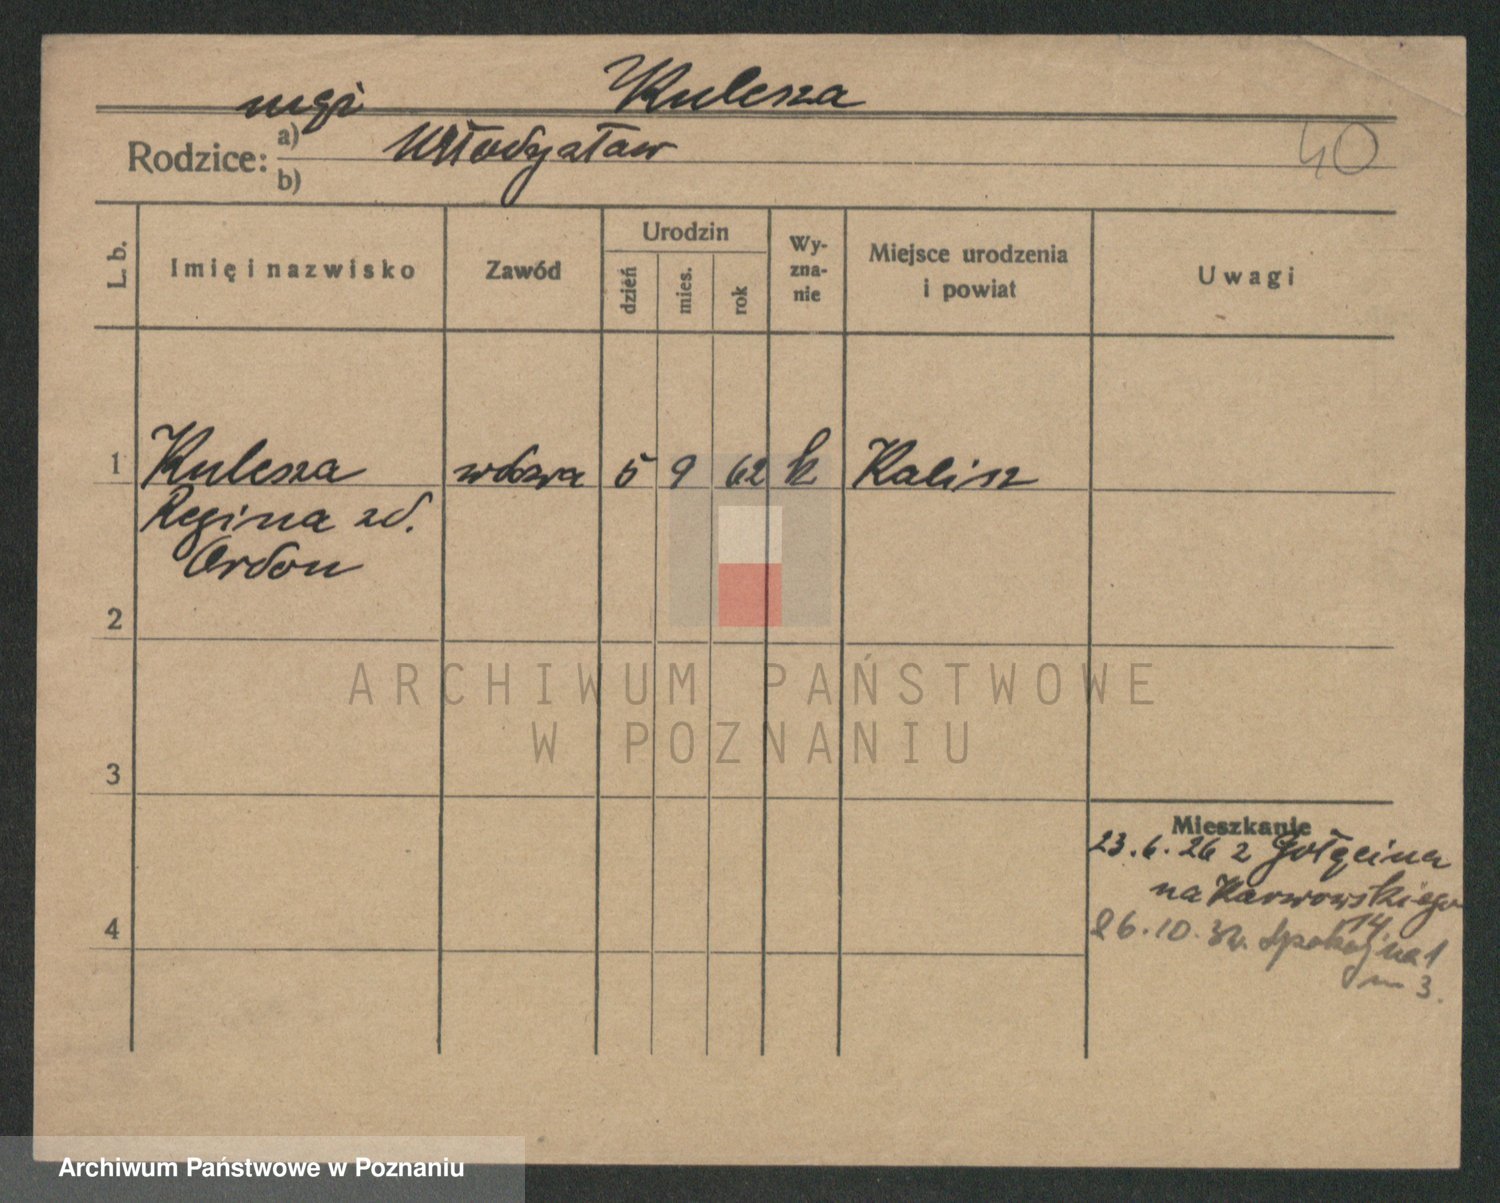 Kulesza
mąż
Rodzice: a) Włodysław
b)
40
L. b.
Imię i nazwisko
Zawód
Urodzin
dzień
mies.
rok
Wy-
zna-
nie
Miejsce urodzenia
i powiat
Uwagi
1 Kulesza wdowa 5 9 62 k Kalisz
Regina zd.
Ordon
2
ARCHIWUM PAŃSTWOWE
W POZNANIU
3
Mieszkanie
23.6.26 z Gołęcina
na Karwowskiego
14
26.10.32. Spokojna 1
m 3.
4
Archiwum Państwowe w Poznaniu